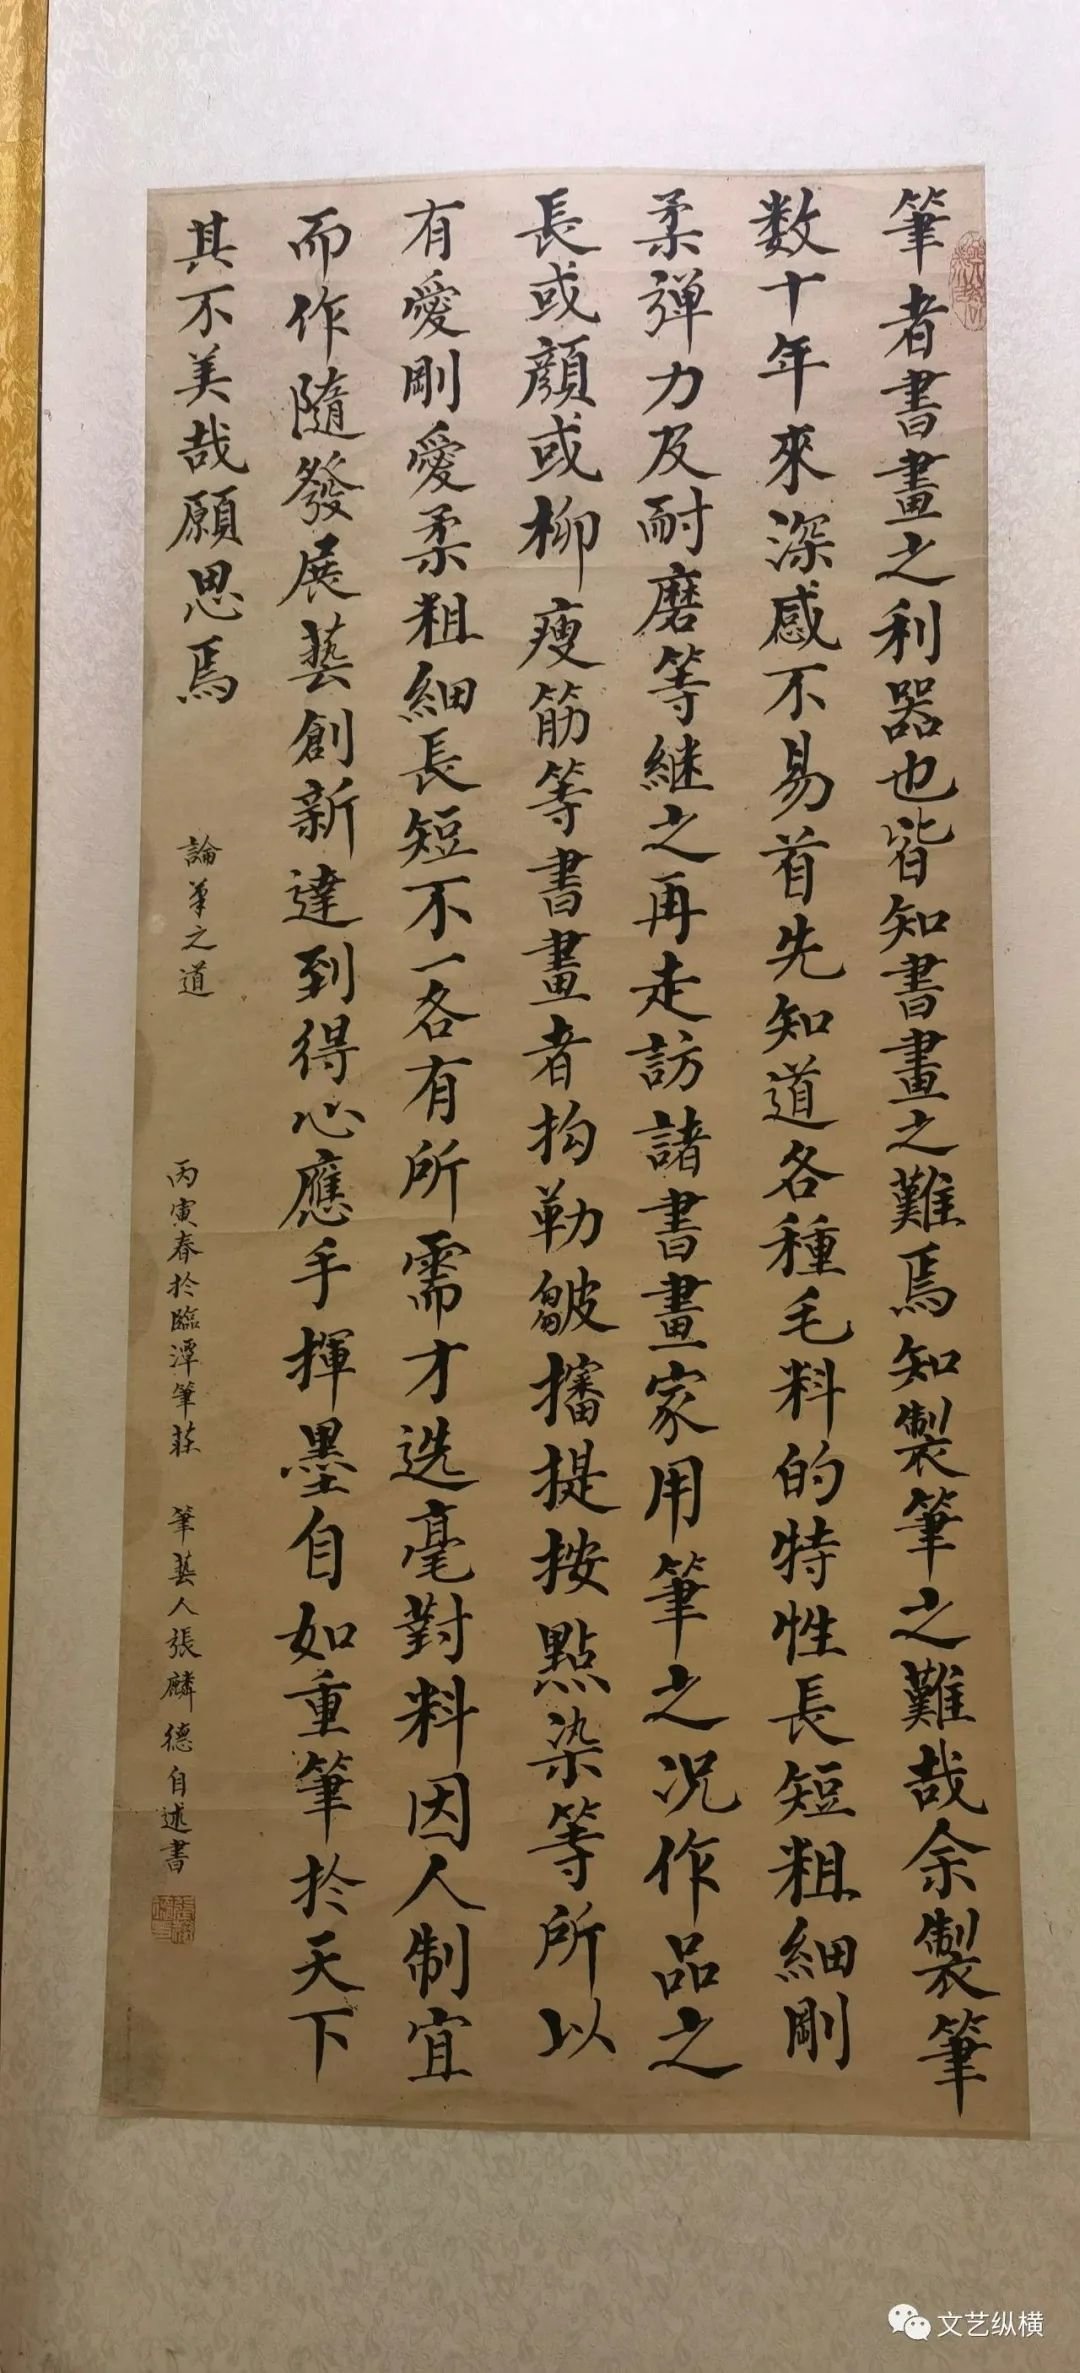 筆者書畫之利器也皆知書畫之難焉知製筆之難哉余製筆
数十年來深感不易首先知道各種毛料的特性長短粗細剛
柔弹力及耐磨等継之再走訪諸書畫家用筆之况作品之
長或顔或柳瘦筋等書畫者构勒皴擂提按點染等所以
有愛剛愛柔粗細長短不一各有所需才选毫對料因人制宜
而作隨發展藝創新達到得心應手揮墨自如重筆於天下
其不美哉願思焉
論筆之道
丙寅春於臨潭筆莊 筆藝人張麟德自述書
文艺纵横